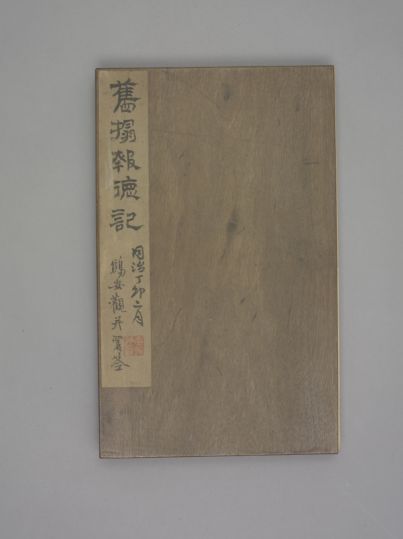 舊搨報德記
同治丁卯二月
鶴安觀并署䇿